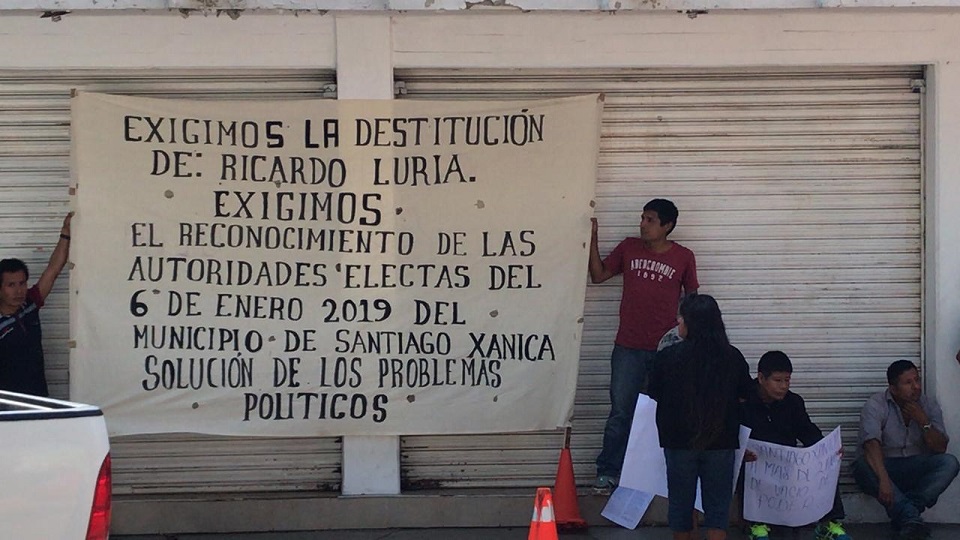 EXIGIMOS LA DESTITUCIÓN
DE: RICARDO LURIA.
EXIGIMOS
EL RECONOCIMIENTO DE LAS
AUTORIDADES ELECTAS DEL
6 DE ENERO 2019 DEL
MUNICIPIO DE SANTIAGO XANICA
SOLUCIÓN DE LOS PROBLEMAS
POLITICOS
ABERCROMBIE
1892
SANTIAGO
MAS
DE